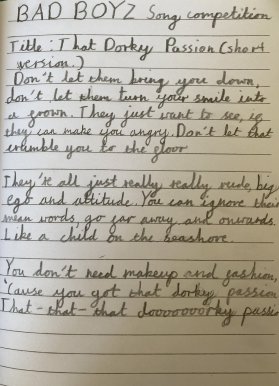 BAD BOYZ Song competition
Title: That Dorky Passion (short
version.)
Don't let them bring you down,
don't let them turn your smile into
a frown. They just want to see, if
they can make you angry. Don't let that
crumble you to the floor
They're all just really really rude, big
ego and attitude. You can ignore their
mean words, go far away and onwards.
Like a child on the seashore.
You don't need makeup and fashion,
'Cause you got that dorky passion
That-that-that dooooooorky passio